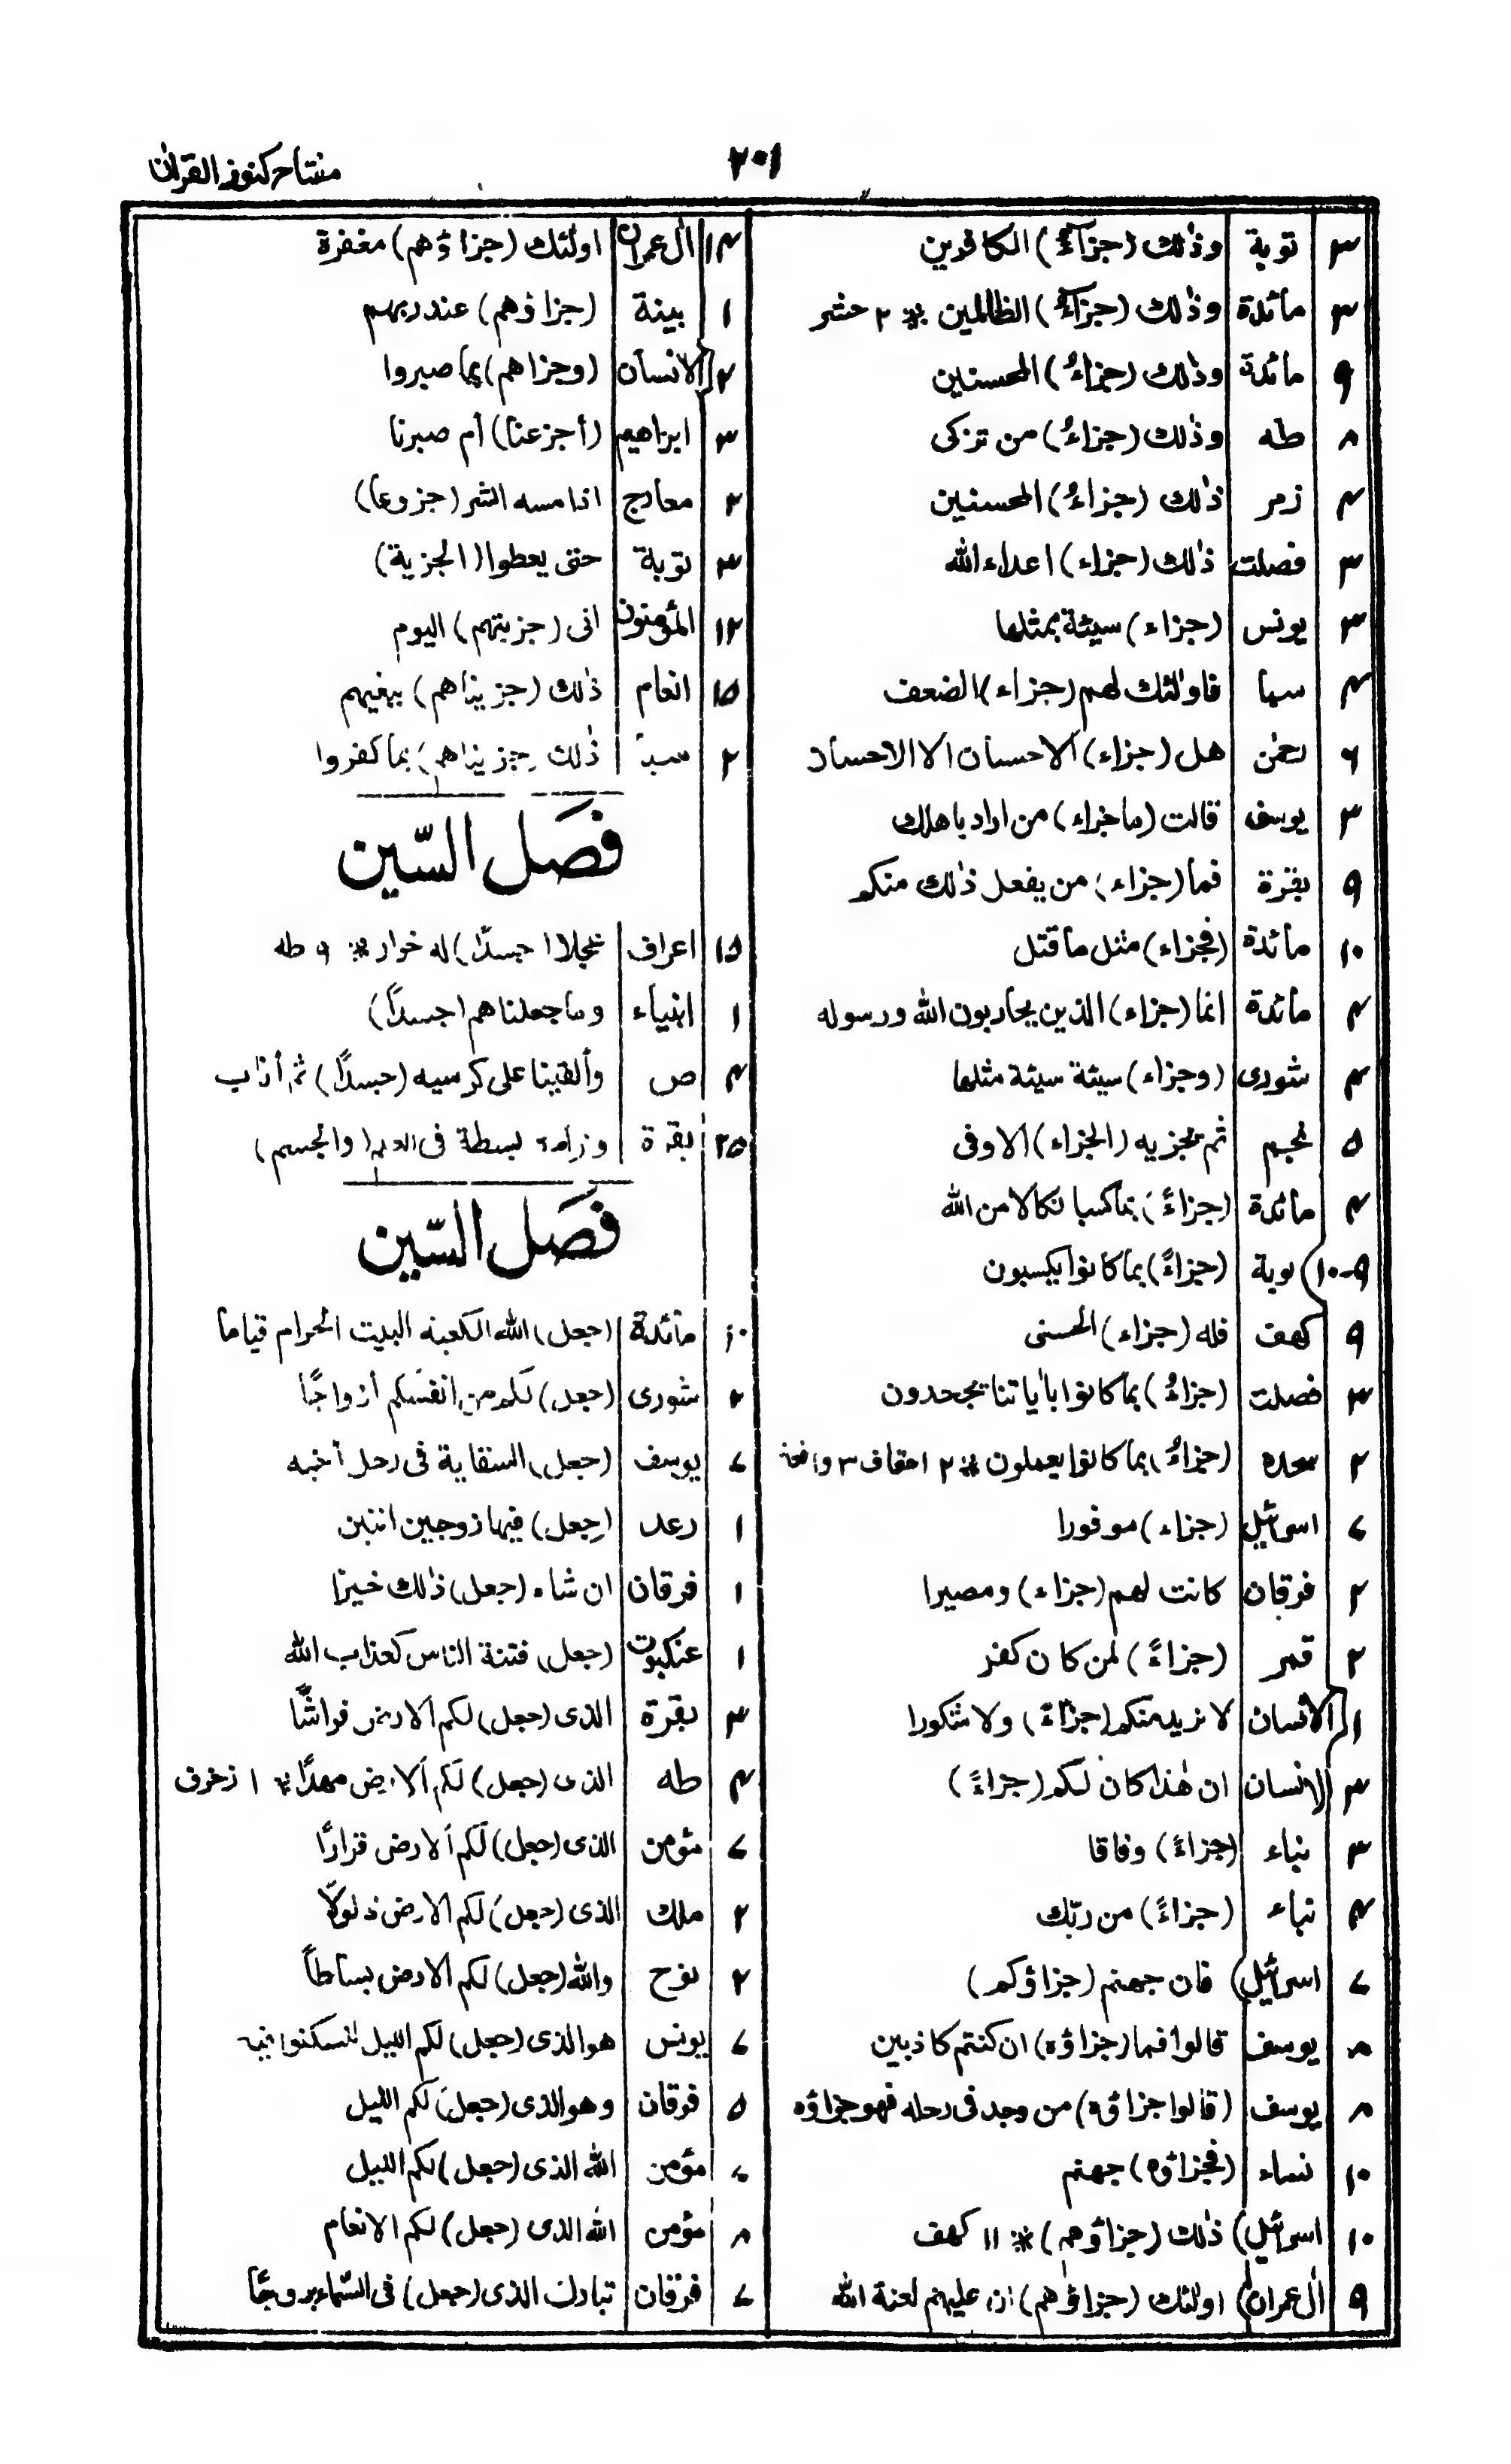 مفتاح كنوز القران
٢٠١
٣ توبة وذٰلك (جزآءُ) الكافرين
٣ مائدة وذٰلك (جزآءُ) الظالمين * ٢ حشر
٩ مائدة وذٰلك (جزاءُ) المحسنين
٨ طه وذٰلك (جزاءُ) من تزكى
٤ زمر ذٰلك (جزاءُ) المحسنين
٣ فصلت ذٰلك (جزاء) اعداء الله
٣ يونس (جزاء) سيئة بمثلها
٤ سبا فاولٰئك لهم (جزاء) الضعف
٦ رحمٰن هل (جزاء) الاحسان الا الاحسان
٣ يوسف قالت (ما جزاء) من اراد باهلك
٩ بقرة فما (جزاء) من يفعل ذٰلك منكم
١٠ مائدة (فجزاء) مثل ما قتل
٤ مائدة انما (جزاء) الذين يحاربون الله ورسوله
٤ شورى (وجزاء) سيئة سيئة مثلها
٥ نجم ثم يجزيه (الجزاء) الاوفى
٤ مائدة (جزاءً) بما كسبا نكالا من الله
٩-١٠ توبة (جزاءً) بما كانوا يكسبون
٩ كهف فله (جزاء) الحسنى
٣ فصلت (جزاءً) بما كانوا باٰياتنا يجحدون
٢ سجده (جزاءً) بما كانوا يعملون * ٢ احقاف
٧ اسرائيل (جزاء) موفورا
٢ فرقان كانت لهم (جزاء) ومصيرا
٢ قمر (جزاءً) لمن كان كفر
١ الانسان لا نريد منكم (جزاءً) ولا شكورا
٣ الانسان ان هٰذا كان لكم (جزاءً)
٣ نباء (جزاءً) وفاقا
٤ نباء (جزاءً) من ربّك
٧ اسرائيل فان جهنم (جزاؤكم)
٨ يوسف قالوا فما (جزاؤه) ان كنتم كاذبين
٨ يوسف (قالوا جزاؤه) من وجد فى رحله فهو جزاؤه
١٠ نساء (فجزاؤه) جهنم
١٠ اسرائيل ذٰلك (جزاؤهم) * ١١ كهف
٩ اٰل عمران اولٰئك (جزاؤهم) ان عليهم لعنة الله
١٤ اٰل عمران اولٰئك (جزاؤهم) مغفرة
١ بينة (جزاؤهم) عند ربهم
٢ الانسان (وجزاهم) بما صبروا
٣ ابراهيم (أجزعنا) أم صبرنا
٢ معارج اذا مسه الشر (جزوعا)
٣ توبة حتى يعطوا (الجزية)
١٢ المؤمنون انى (جزيتهم) اليوم
١٥ انعام ذٰلك (جزيناهم) ببغيهم
٢ سبأ ذٰلك (جزيناهم) بما كفروا
فصَل السّين
١٥ اعراف عجلا (جسدًا) له خوار * ٩ طه
١ انبياء وما جعلناهم (جسدًا)
٤ ص وألقينا على كرسيه (جسدًا) ثم أناب
٢٥ بقرة وزاده بسطة فى العلم (والجسم)
فصَل السّين
١٠ مائدة (جعل) الله الكعبة البيت الحرام قياما
٢ شورى (جعل) لكم من انفسكم أزواجًا
٧ يوسف (جعل) السقاية فى رحل أخيه
١ رعد (جعل) فيها زوجين اثنين
١ فرقان ان شاء (جعل) ذٰلك خيرا
١ عنكبوت (جعل) فتنة الناس كعذاب الله
٣ بقرة الذى (جعل) لكم الارض فراشًا
٤ طه الذى (جعل) لكم الارض مهدًا * ١ زخرف
٧ مؤمن الذى (جعل) لكم الارض قرارًا
٢ ملك الذى (جعل) لكم الارض ذلولًا
٢ نوح والله (جعل) لكم الارض بساطاً
٧ يونس هو الذى (جعل) لكم الليل لتسكنوا فيه
٥ فرقان وهو الذى (جعل) لكم الليل
٧ مؤمن الله الذى (جعل) لكم الليل
٨ مؤمن الله الذى (جعل) لكم الانعام
٧ فرقان تبارك الذى (جعل) فى السّماء بروجًا